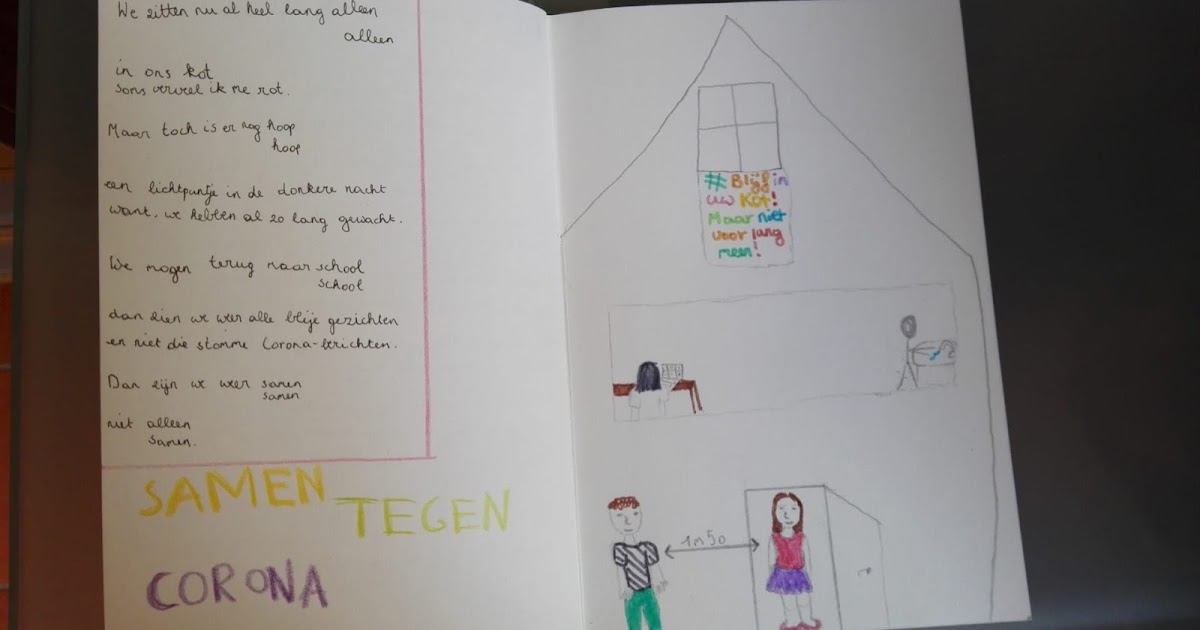 We zitten nu al heel lang alleen
alleen
in ons kot
soms verveel ik me rot.
Maar toch is er nog hoop
hoop
een lichtpuntje in de donkere nacht
want, we hebben al zo lang gewacht.
We mogen terug naar school
school
dan zien we weer alle blije gezichten
en niet die stomme Corona-berichten.
Dan zijn we weer samen
samen
niet alleen
samen.
SAMEN
TEGEN
CORONA
# Blijf in
uw Kot!
Maar niet
voor lang
meer!
1m50